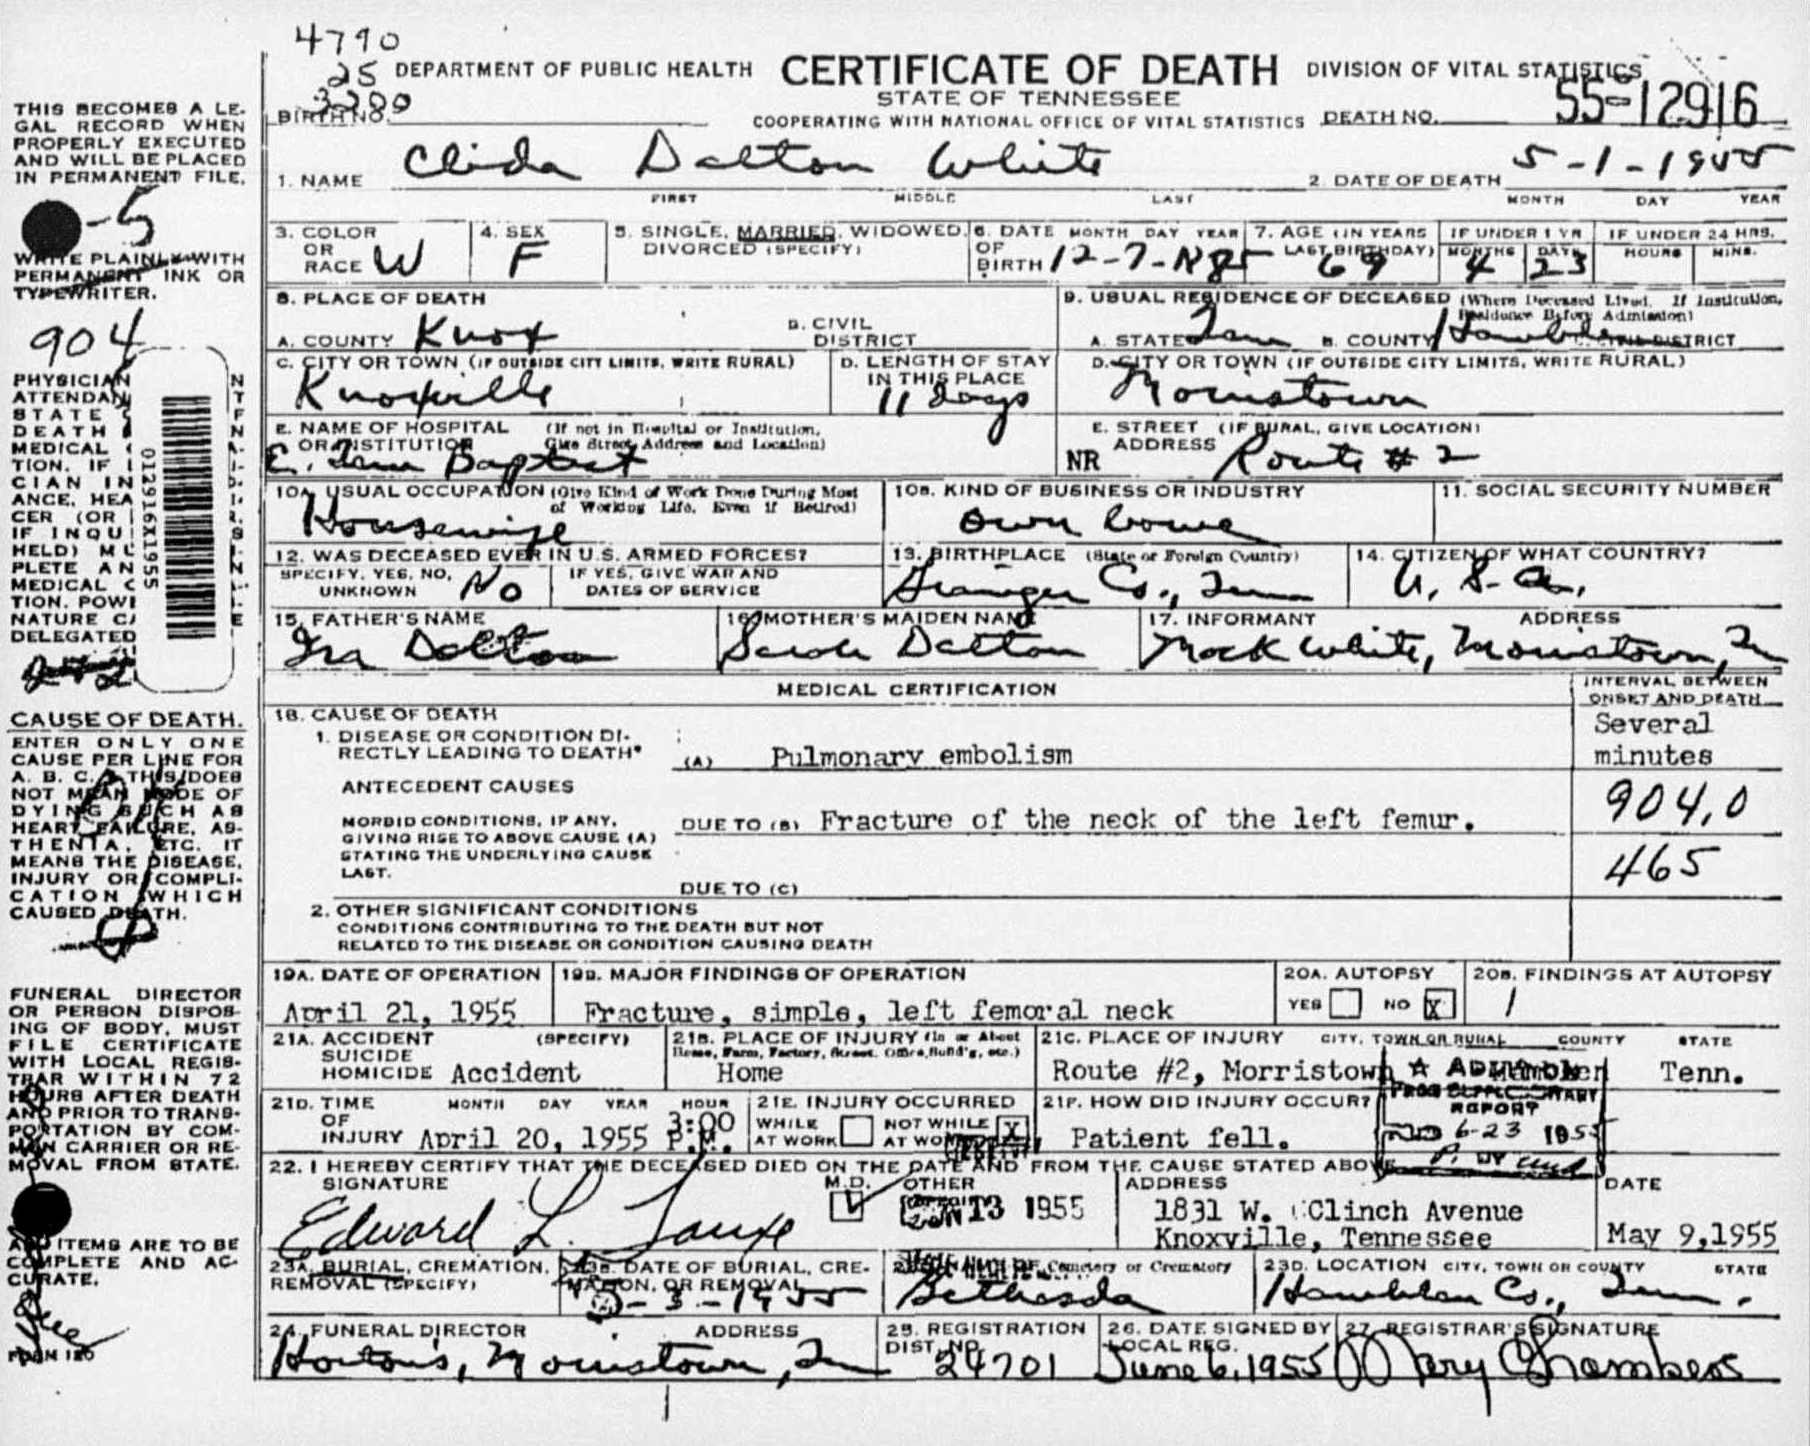 4790
25
3200
DEPARTMENT OF PUBLIC HEALTH CERTIFICATE OF DEATH DIVISION OF VITAL STATISTICS
STATE OF TENNESSEE
BIRTH NO. COOPERATING WITH NATIONAL OFFICE OF VITAL STATISTICS DEATH NO. 55-12916
1. NAME Clida Dalton White 2. DATE OF DEATH 5-1-1955
FIRST MIDDLE LAST MONTH DAY YEAR
3. COLOR OR RACE W 4. SEX F 5. SINGLE, MARRIED, WIDOWED, DIVORCED (SPECIFY) 6. DATE OF BIRTH MONTH DAY YEAR 12-7-1885 7. AGE (IN YEARS LAST BIRTHDAY) 69 IF UNDER 1 YR MONTHS 4 DAYS 23 IF UNDER 24 HRS. HOURS MINS.
8. PLACE OF DEATH
A. COUNTY Knox B. CIVIL DISTRICT
9. USUAL RESIDENCE OF DECEASED (Where Deceased Lived. If Institution, Residence Before Admission)
A. STATE Tenn B. COUNTY Hamblen C. CIVIL DISTRICT
C. CITY OR TOWN (IF OUTSIDE CITY LIMITS, WRITE RURAL) Knoxville
D. LENGTH OF STAY IN THIS PLACE 11 days
D. CITY OR TOWN (IF OUTSIDE CITY LIMITS, WRITE RURAL) Morristown
E. NAME OF HOSPITAL OR INSTITUTION (If not in Hospital or Institution, Give Street Address and Location) E. Tenn Baptist
E. STREET ADDRESS (IF RURAL, GIVE LOCATION) NR Route #2
10A. USUAL OCCUPATION (Give Kind of Work Done During Most of Working Life, Even if Retired) Housewife
10B. KIND OF BUSINESS OR INDUSTRY own home
11. SOCIAL SECURITY NUMBER
12. WAS DECEASED EVER IN U.S. ARMED FORCES?
SPECIFY, YES, NO, UNKNOWN No IF YES, GIVE WAR AND DATES OF SERVICE
13. BIRTHPLACE (State or Foreign Country) Grainger Co., Tenn
14. CITIZEN OF WHAT COUNTRY? U. S. A.
15. FATHER'S NAME Ira Dalton
16. MOTHER'S MAIDEN NAME Sarah Dalton
17. INFORMANT ADDRESS Mack White, Morristown, Tn
MEDICAL CERTIFICATION
INTERVAL BETWEEN ONSET AND DEATH
18. CAUSE OF DEATH
1. DISEASE OR CONDITION DIRECTLY LEADING TO DEATH* (A) Pulmonary embolism Several minutes
ANTECEDENT CAUSES
904.0
MORBID CONDITIONS, IF ANY, GIVING RISE TO ABOVE CAUSE (A) STATING THE UNDERLYING CAUSE LAST.
DUE TO (B) Fracture of the neck of the left femur.
465
DUE TO (C)
2. OTHER SIGNIFICANT CONDITIONS
CONDITIONS CONTRIBUTING TO THE DEATH BUT NOT
RELATED TO THE DISEASE OR CONDITION CAUSING DEATH
19A. DATE OF OPERATION April 21, 1955
19B. MAJOR FINDINGS OF OPERATION Fracture, simple, left femoral neck
20A. AUTOPSY YES NO X
20B. FINDINGS AT AUTOPSY
21A. ACCIDENT SUICIDE HOMICIDE (SPECIFY) Accident
21B. PLACE OF INJURY (In or About Home, Farm, Factory, Street, Office, Build'g, etc.) Home
21C. PLACE OF INJURY CITY, TOWN OR RURAL COUNTY STATE
Route #2, Morristown Hamblen Tenn.
21D. TIME OF INJURY MONTH DAY YEAR HOUR April 20, 1955 3:00 P.M.
21E. INJURY OCCURRED WHILE AT WORK NOT WHILE AT WORK X
21F. HOW DID INJURY OCCUR? Patient fell.
FROM SUPPLEMENTARY
REPORT
6-23 1955
BY
22. I HEREBY CERTIFY THAT THE DECEASED DIED ON THE DATE AND FROM THE CAUSE STATED ABOVE
SIGNATURE M.D. OTHER ADDRESS DATE
Edward L. JUN 13 1955 1831 W. Clinch Avenue
Knoxville, Tennessee May 9,1955
23A. BURIAL, CREMATION, REMOVAL (SPECIFY)
23B. DATE OF BURIAL, CREMATION, OR REMOVAL 5-3-1955
Cemetery or Crematory Bethesda
23D. LOCATION CITY, TOWN OR COUNTY STATE Hamblen Co., Tenn.
24. FUNERAL DIRECTOR ADDRESS Horton's, Morristown, Tn
25. REGISTRATION DIST. NO. 24701
26. DATE SIGNED BY LOCAL REG. June 6, 1955
27. REGISTRAR'S SIGNATURE Mary Chambers
THIS BECOMES A LE-
GAL RECORD WHEN
PROPERLY EXECUTED
AND WILL BE PLACED
IN PERMANENT FILE.
-5
WRITE PLAINLY WITH
PERMANENT INK OR
TYPEWRITER.
904
PHYSICIAN
ATTENDAN
STATE
DEATH
MEDICAL
TION. IF
CIAN IN
ANCE, HEA
CER (OR
IF INQU
HELD) MU
PLETE AN
MEDICAL C
TION. POWE
NATURE CA
DELEGATED
012916X1955
CAUSE OF DEATH.
ENTER ONLY ONE
CAUSE PER LINE FOR
A. B. C. THIS DOES
NOT MEAN MODE OF
DYING SUCH AS
HEART FAILURE, AS-
THENIA, ETC. IT
MEANS THE DISEASE,
INJURY OR COMPLI-
CATION WHICH
CAUSED DEATH.
FUNERAL DIRECTOR
OR PERSON DISPOS-
ING OF BODY, MUST
FILE CERTIFICATE
WITH LOCAL REGIS-
TRAR WITHIN 72
HOURS AFTER DEATH
AND PRIOR TO TRANS-
PORTATION BY COM-
MON CARRIER OR RE-
MOVAL FROM STATE.
ALL ITEMS ARE TO BE
COMPLETE AND AC-
CURATE.